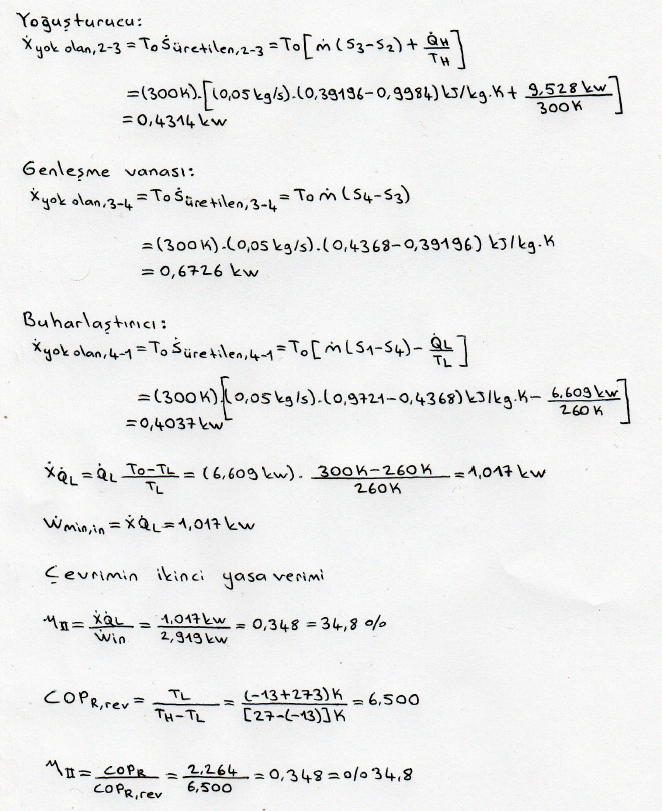 Yoğuşturucu:
Ẋyok olan,2-3 = T₀Ṡüretilen,2-3 = T₀[ṁ(s₃-s₂) + Q̇H/TH]
= (300K).[(0,05 kg/s).(0,39196-0,9984) kJ/kg.K + 9,528 kw/300K]
= 0,4314 kw
Genleşme vanası:
Ẋyok olan,3-4 = T₀Ṡüretilen,3-4 = T₀ṁ(s₄-s₃)
= (300K).(0,05 kg/s).(0,4368-0,39196) kJ/kg.K
= 0,6726 kw
Buharlaştırıcı:
Ẋyok olan,4-1 = T₀Ṡüretilen,4-1 = T₀[ṁ(s₁-s₄) - Q̇L/TL]
= (300K).[(0,05 kg/s).(0,9721-0,4368) kJ/kg.K - 6,609 kw/260K]
= 0,4037 kw
ẊQ̇L = Q̇L T₀-TL/TL = (6,609 kw). 300K-260K/260K = 1,017 kw
Ẇmin,in = ẊQ̇L = 1,017 kw
Çevrimin ikinci yasa verimi
ηII = ẊQ̇L/Ẇin = 1,017 kw/2,919 kw = 0,348 = 34,8 %
COPR,rev = TL/TH-TL = (-13+273)K/[27-(-13)]K = 6,500
ηII = COPR/COPR,rev = 2,264/6,500 = 0,348 = %34,8